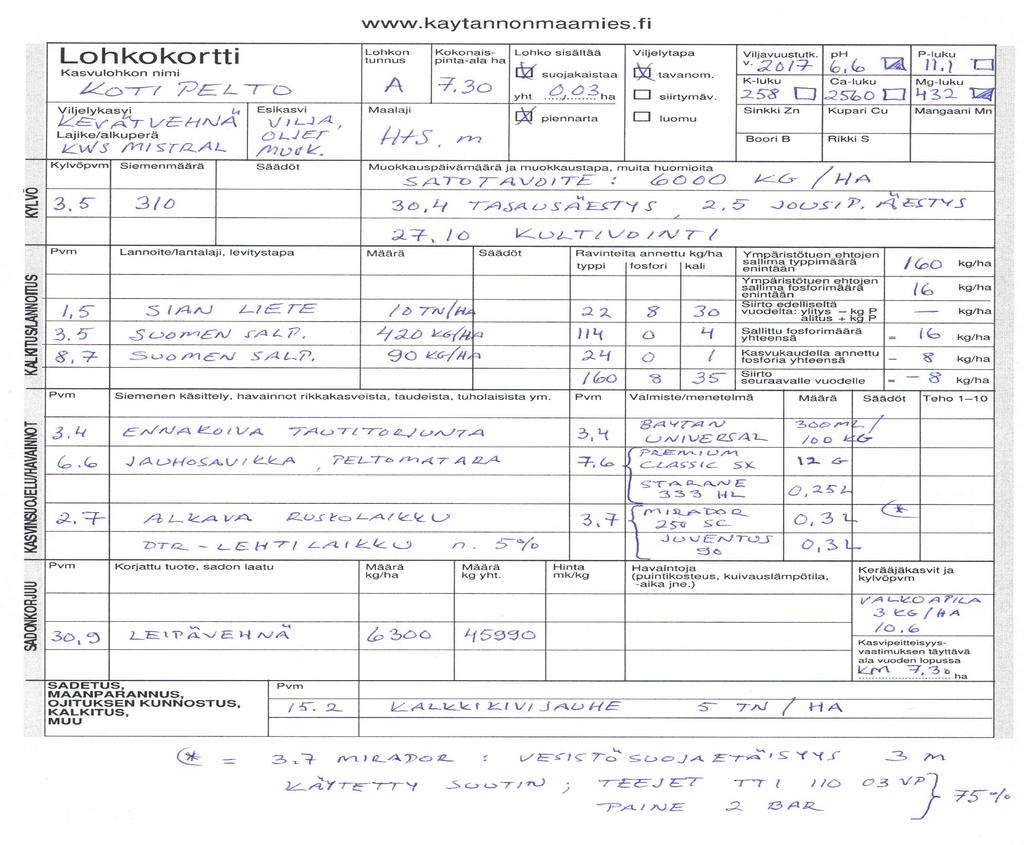 www.kaytannonmaamies.fi
Lohkokortti
Kasvulohkon nimi
KOTI PELTO
Lohkon tunnus
A
Kokonais-pinta-ala ha
7.30
Lohko sisältää
☒ suojakaistaa
yht 0,03 ha
☒ piennarta
Viljelytapa
☒ tavanom.
☐ siirtymäv.
☐ luomu
Viljavuustutk. v. 2017
pH 6,6
P-luku 11.1
K-luku 258
Ca-luku 2560
Mg-luku 432
Sinkki Zn Kupari Cu Mangaani Mn
Boori B Rikki S
Viljelykasvi
KEVÄTVEHNÄ
Lajike/alkuperä
KWS MISTRAL
Esikasvi
VILJA,
OLJET
MUOK.
Maalaji
HtS, m
KYLVÖ
Kylvöpvm Siemenmäärä Säädöt Muokkauspäivämäärä ja muokkaustapa, muita huomioita
SATOTAVOITE : 6000 KG / HA
3.5 310 30,4 TASAUSÄESTYS , 2.5 JOUSIP. ÄESTYS
27.10 KULTIVOINTI
KALKITUS/LANNOITUS
Pvm Lannoite/lantalaji, levitystapa Määrä Säädöt Ravinteita annettu kg/ha
typpi fosfori kali
1,5 SIAN LIETE 10 TN/HA 22 8 30
3.5 SUOMEN SALP. 420 KG/HA 114 0 4
8,7 SUOMEN SALP. 90 KG/HA 24 0 1
160 8 35
Ympäristötuen ehtojen sallima typpimäärä enintään 160 kg/ha
Ympäristötuen ehtojen sallima fosforimäärä enintään 16 kg/ha
Siirto edelliseltä vuodelta: ylitys – kg P alitus + kg P — kg/ha
Sallittu fosforimäärä yhteensä = 16 kg/ha
Kasvukaudella annettu fosforia yhteensä – 8 kg/ha
Siirto seuraavalle vuodelle = – 8 kg/ha
KASVINSUOJELU/HAVAINNOT
Pvm Siemenen käsittely, havainnot rikkakasveista, taudeista, tuholaisista ym. Pvm Valmiste/menetelmä Määrä Säädöt Teho 1–10
3.4 ENNAKOIVA TAUTITORJUNTA 3,4 BAYTAN UNIVERSAL 300 ML / 100 KG
6.6 JAUHOSAVIKKA , PELTOMATARA 7.6 PREMIUM CLASSIC SX 12 G
STARANE 333 HL 0,25 L
2.7 ALKAVA RUSKOLAIKKU 3.7 MIRADOR 250 SC 0,3 L (*
DTR - LEHTILAIKKU n. 5% JUVENTUS 90 0,3 L
SADONKORJUU
Pvm Korjattu tuote, sadon laatu Määrä kg/ha Määrä kg yht. Hinta mk/kg Havaintoja (puintikosteus, kuivauslämpötila, -aika jne.)
30,9 LEIPÄVEHNÄ 6300 45990
Kerääjäkasvit ja kylvöpvm
VALKOAPILA
3 KG / HA
10.6
Kasvipeitteisyys-vaatimuksen täyttävä ala vuoden lopussa
KM 7,30 ha
SADETUS,
MAANPARANNUS,
OJITUKSEN KUNNOSTUS,
KALKITUS,
MUU
Pvm
15.2 KALKKIKIVIJAUHE 5 TN / HA
(* = 3.7 MIRADOR : VESISTÖSUOJAETÄISYYS 3 m
KÄYTETTY SUUTIN ; TEEJET TTI 110 03 VP
PAINE 2 BAR
75 %